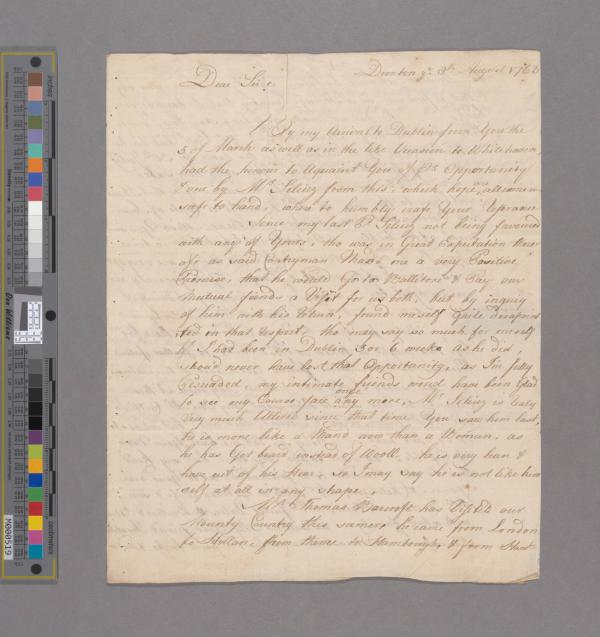 Dronton yᵉ 3ᵈ August 1762
Dear Sir
By my Arrival to Dublin from You the
5 of March as well as in the like Occasion to Whitehaven,
had the honour to Aquaint You of pr Opportunity
& one by Mr. from this, which hope are come
safe to hand, where to humbly crave Your
Since my last P not being favoured
with any of Yours, tho was in Great Expectation there
of, as said Contryman Made me a very Positive
Promise, that he would Go to Ballitore & Pay our
mutual friends a Visit for us both, but by inquiry
of him with his Return, found meself Quite disapoint
ted in that respect, tho may say so much for meself
if I had been in Dublin 5 or 6 weeks as he did,
shoud never have lost that Opportunity, as I'm fully
Persuaded, my intimate friends woud have been Glad
to see my Course face any once more, Mr. is
very much Altered since that time You saw him last,
he is more like a now than a Woman, as
he has Got beard instead of Wooll, he is very lean &
have cut of his Hear, so I may say he is not like him
self at all in any Shape,
Mr. Thomas Barcroft has Visited our
Mounty Country this sumer, he came from London
to Hollan, from thence to Hambough, & from
inches
centimeters
Don Williams
M000519